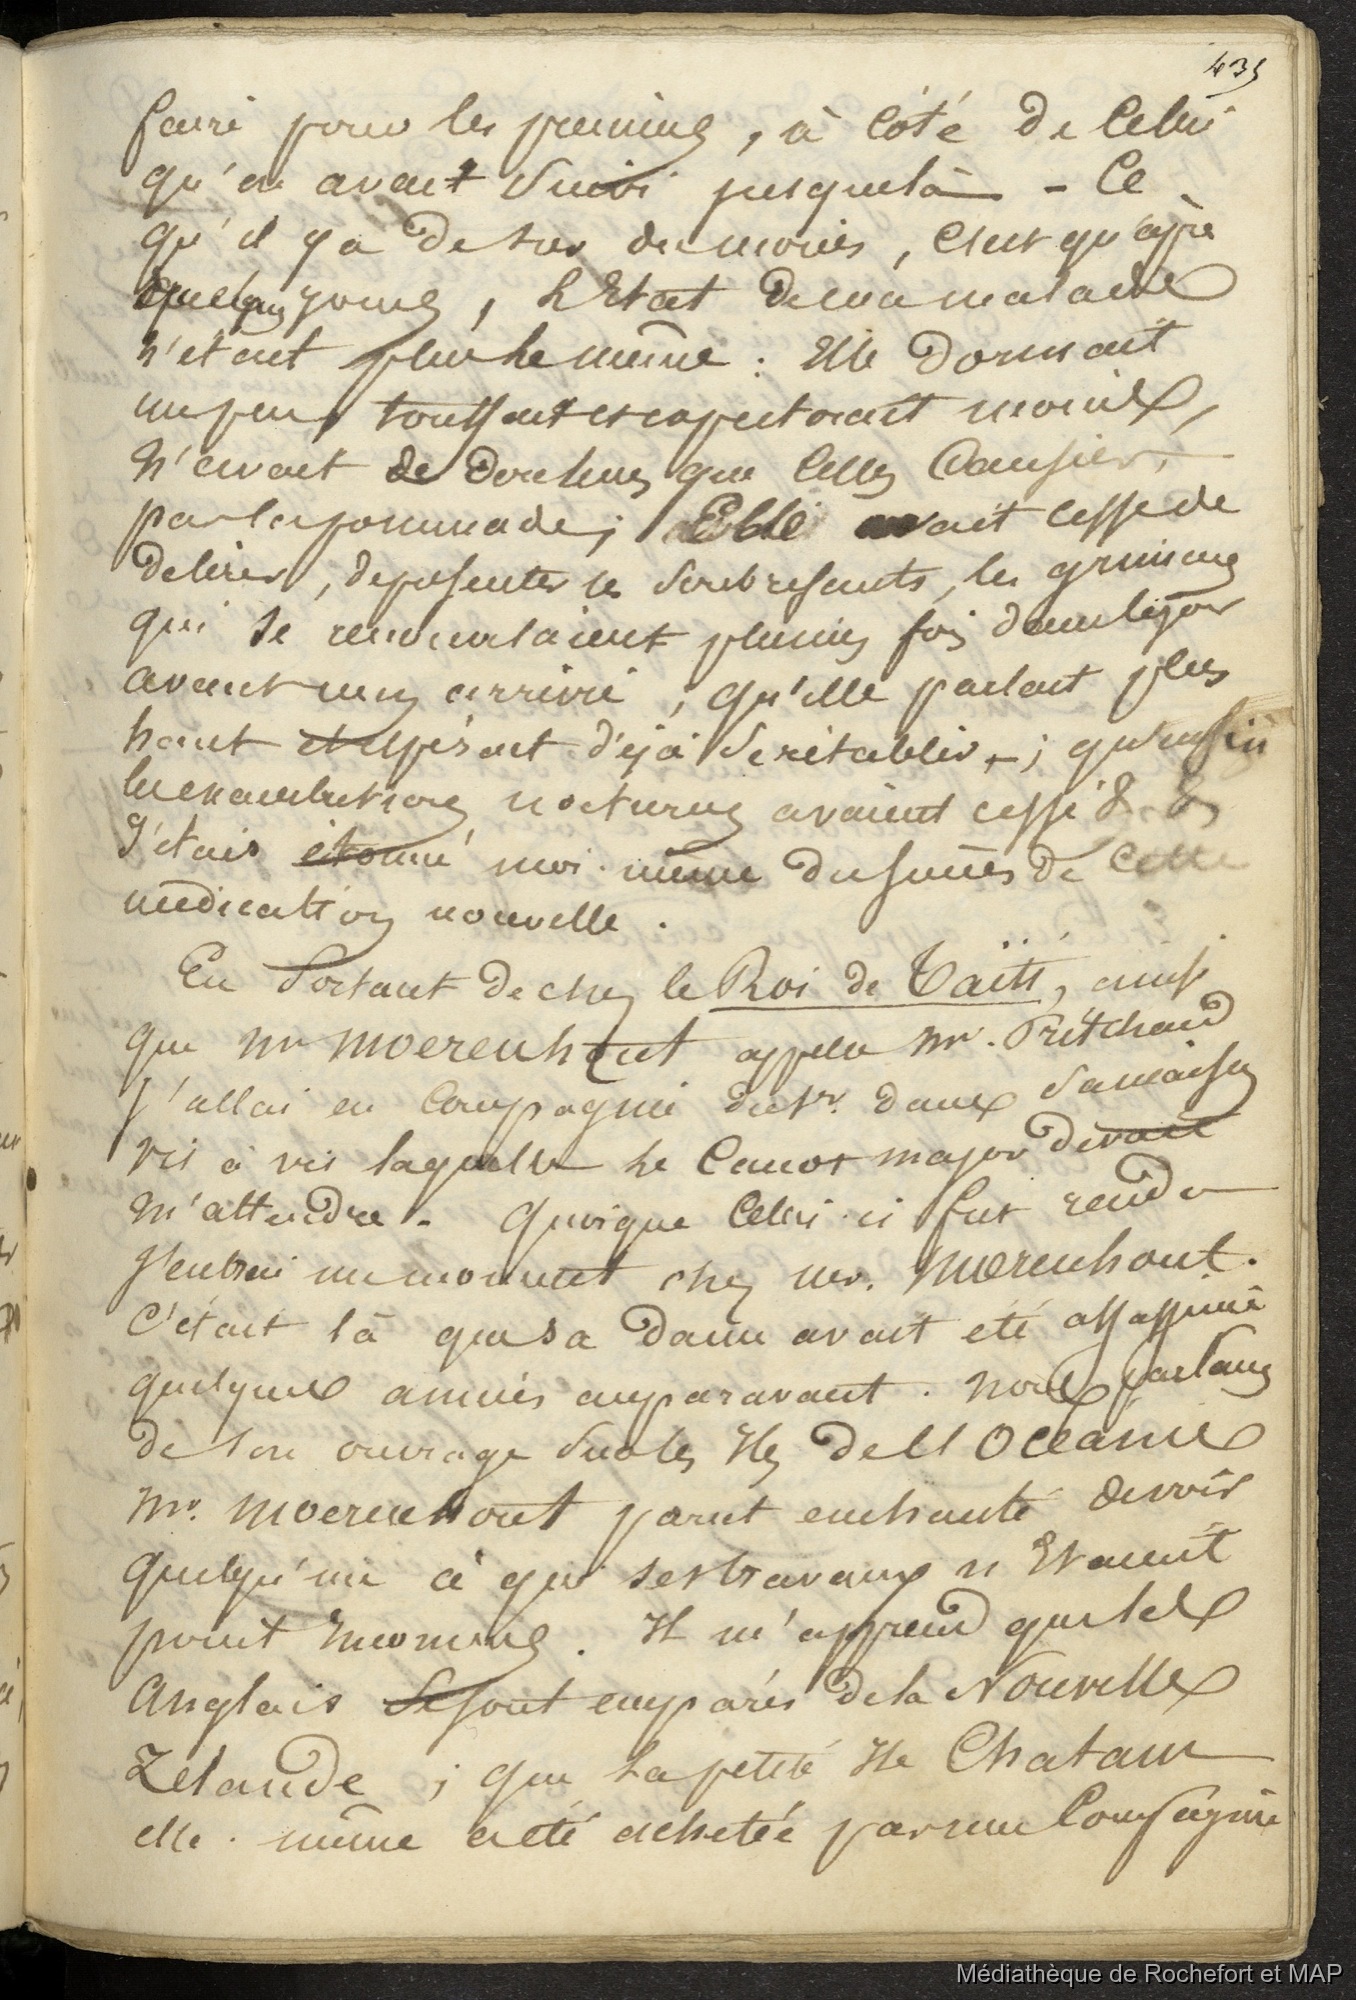 435
faire pour les poumons, à côté de celui
qu'on avait suivi jusquelà - Ce
qu'il y a de sur du moins, c'est qu'apre
quelques jours, l'Etat de ma malade
n'etait plus le même : Elle dormait
un peu, toussait et expectorait moins,
n'avait de douleurs que celles causées
par la pommade; Elle avait cessé de
delirer, de presenter les soubresauts, les
qui se renouvelaient plusieurs fois dans le jour
avant mon arrivée ; qu'elle parlait plus
haut et esperait dejà se rétablir ; qu'enfin
les exacerbations nocturnes avaient cessé & &
J'etais étonné moi-même du succès de cette
médication nouvelle.
En sortant de chez le Roi de Taïti, ainsi
que Mr Moerenhout appela Mr. Pritchard
j'allai en compagnie du 1er. dans sa maison
vis à vis laquelle le canot major devait
m'attendre. Quoique celui-ci fut rendu
j'entrai un moment chez Mr. Moerenhout.
C'était là que sa dame avait eté assassinée
quelques années auparavant. Nous parlames
de son ouvrage sur les Iles de l'Océanie
Mr. Moerenhout parut enchanté de voir
quelqu'un à qui ses travaux n'Etaient
point Inconnus. Il m'apprend que les
Anglais se sont emparés de la Nouvelle
Zelande ; que la petite Ile Chatam
elle-même a eté achetée par une Compagnie
Médiathèque de Rochefort et MAP